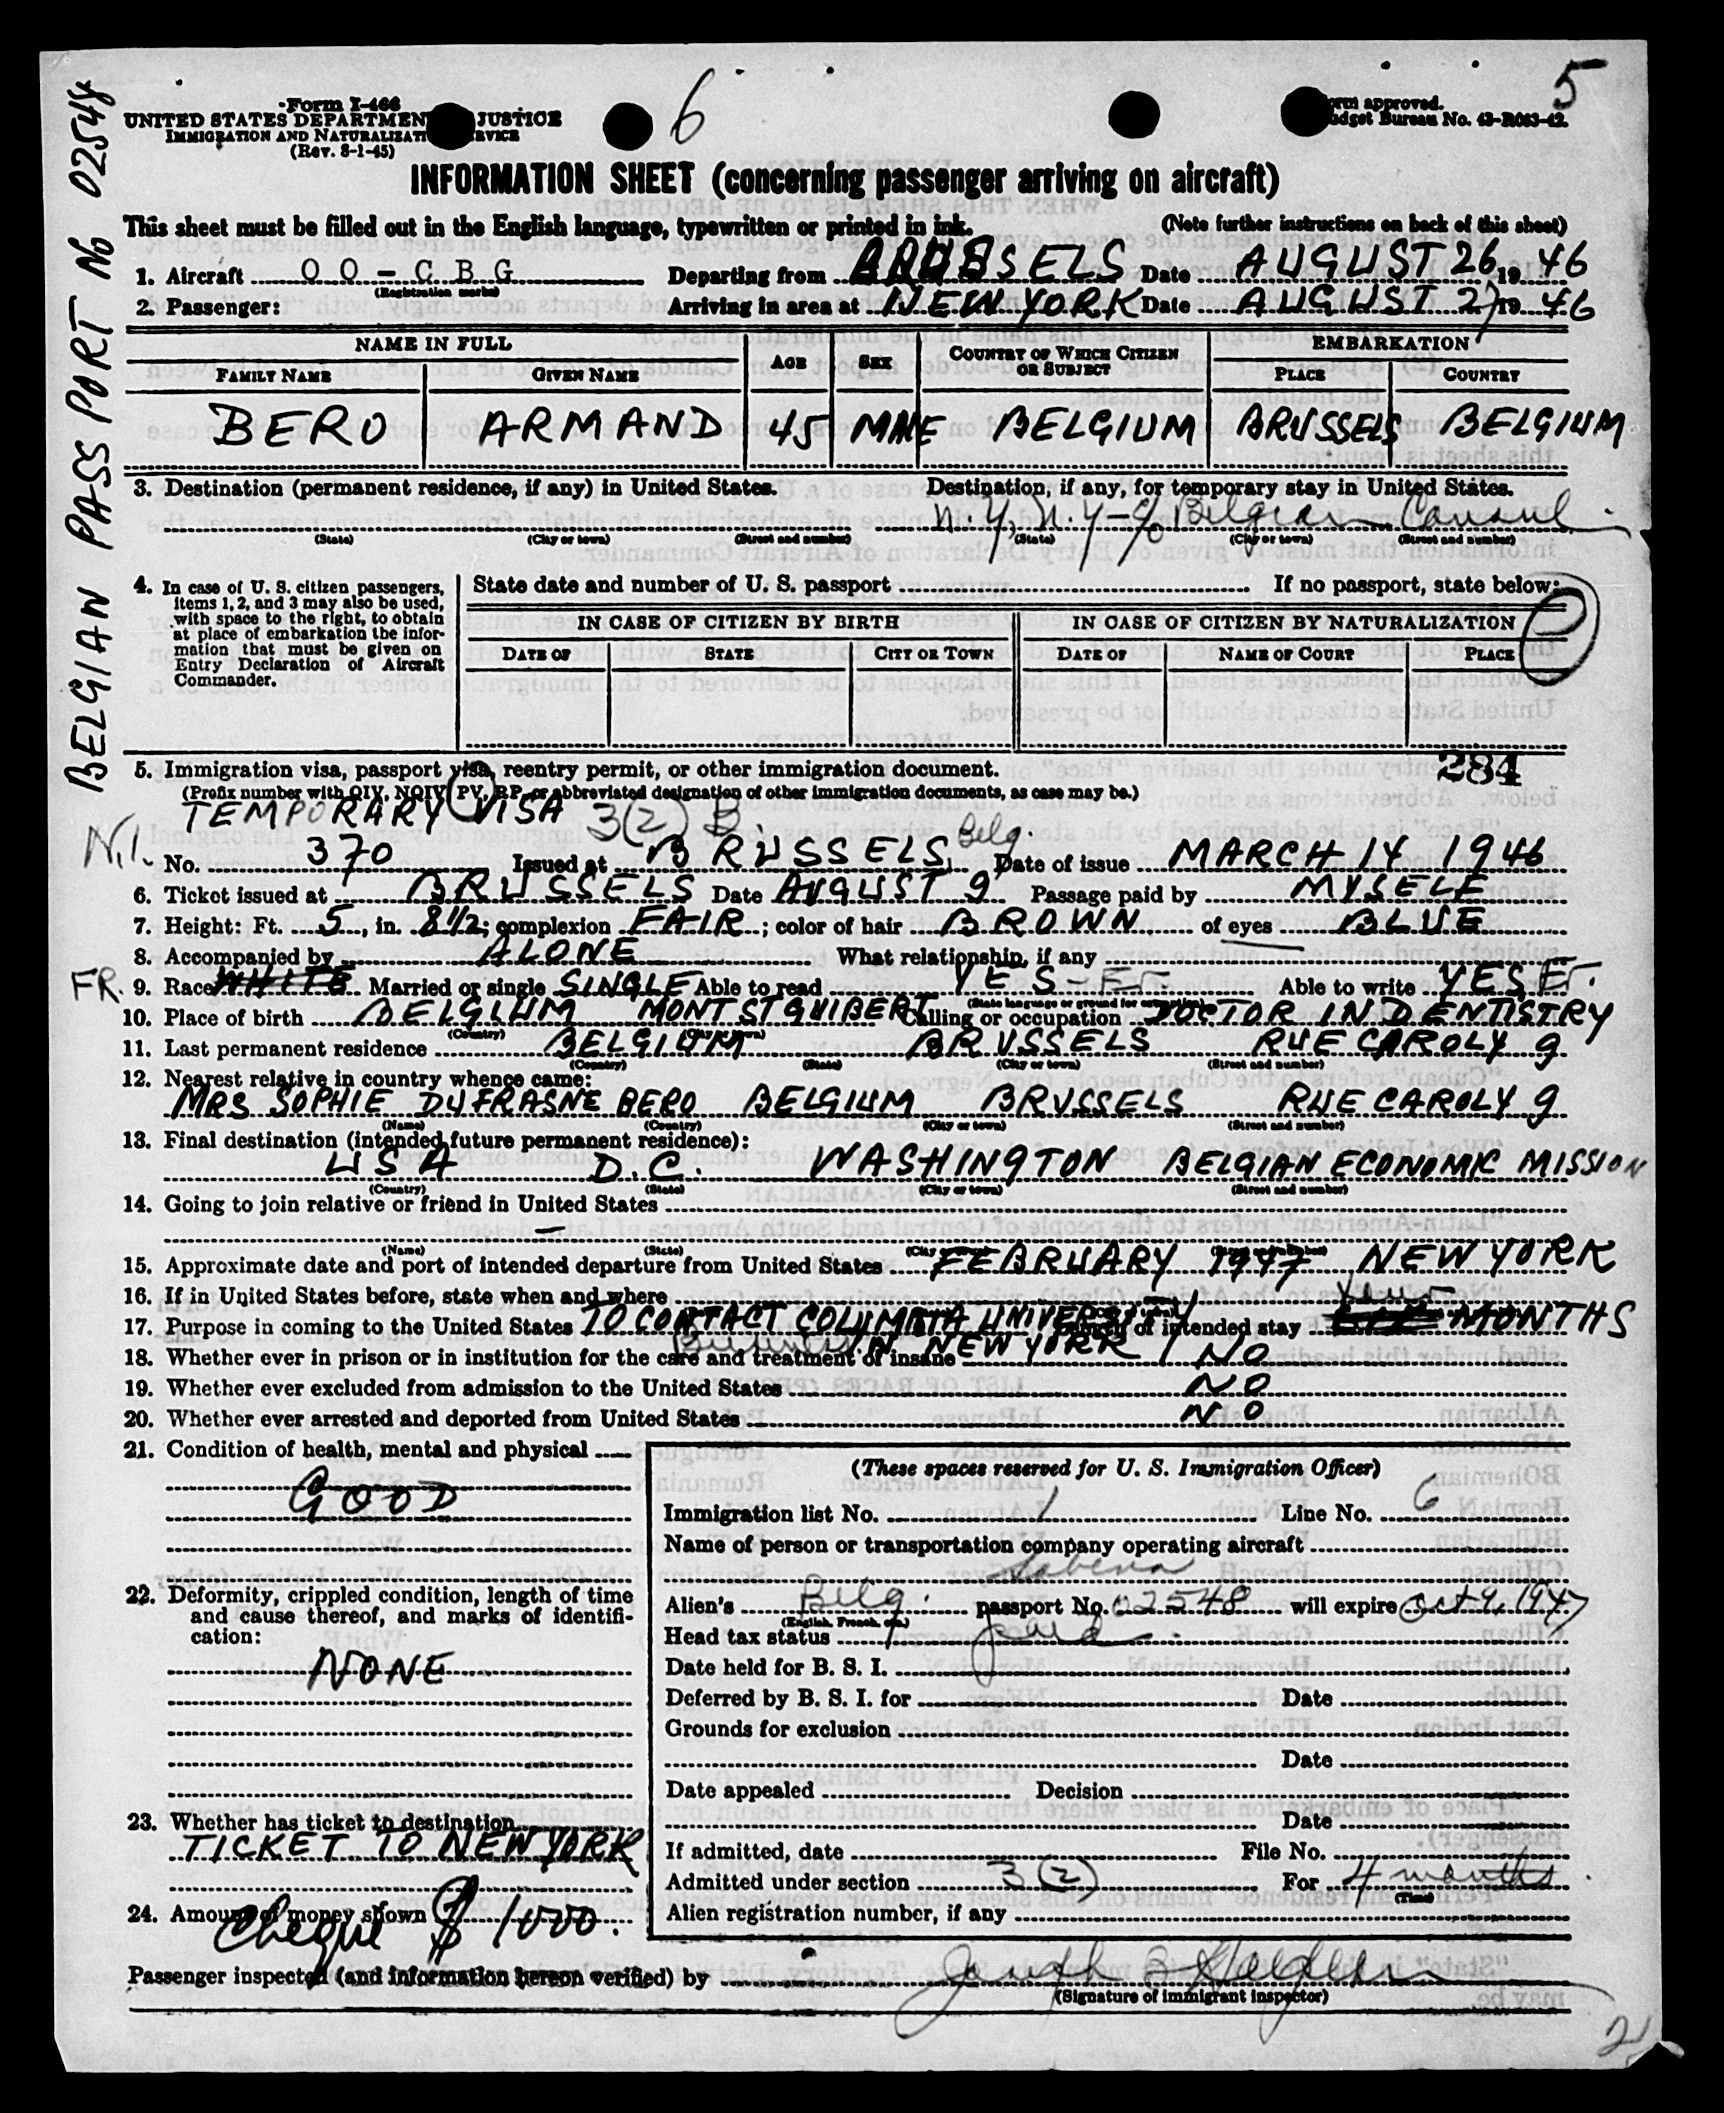 6
5
Form I-466
UNITED STATES DEPARTMENT JUSTICE
IMMIGRATION AND NATURALIZATI RVICE
(Rev. 8-1-45)
orm approved.
udget Bureau No. 43-R063-42.
BELGIAN PASSPORT No 02548
INFORMATION SHEET (concerning passenger arriving on aircraft)
This sheet must be filled out in the English language, typewritten or printed in ink. (Note further instructions on back of this sheet)
1. Aircraft OO-CBG Departing from BRUSSELS Date AUGUST 26 1946
(Registration marks)
2. Passenger: Arriving in area at NEW YORK Date AUGUST 27 1946
NAME IN FULL AGE SEX COUNTRY OF WHICH CITIZEN OR SUBJECT EMBARKATION
FAMILY NAME GIVEN NAME PLACE COUNTRY
BERO ARMAND 45 MALE BELGIUM BRUSSELS BELGIUM
3. Destination (permanent residence, if any) in United States. Destination, if any, for temporary stay in United States.
N.Y, N.Y - c/o Belgian Consul
(State) (City or town) (Street and number) (State) (City or town) (Street and number)
4. In case of U. S. citizen passengers, items 1, 2, and 3 may also be used, with space to the right, to obtain at place of embarkation the information that must be given on Entry Declaration of Aircraft Commander.
State date and number of U. S. passport If no passport, state below:
IN CASE OF CITIZEN BY BIRTH IN CASE OF CITIZEN BY NATURALIZATION
DATE OF STATE CITY OR TOWN DATE OF NAME OF COURT PLACE
284
5. Immigration visa, passport visa, reentry permit, or other immigration document.
(Prefix number with QIV, NQIV, PV, RP, or abbreviated designation of other immigration documents, as case may be.)
TEMPORARY VISA 3(2) B.
N.I. No. 370 Issued at BRUSSELS, Belg. Date of issue MARCH 14 1946
6. Ticket issued at BRUSSELS Date AUGUST 9 Passage paid by MYSELF
7. Height: Ft. 5, in. 8 1/2; complexion FAIR; color of hair BROWN of eyes BLUE
8. Accompanied by ALONE What relationship, if any
FR. 9. Race WHITE Married or single SINGLE Able to read YES - Fr. Able to write YES Fr.
(State language or ground for exemption)
10. Place of birth BELGIUM MONT ST GUIBERT Calling or occupation DOCTOR IN DENTISTRY
(Country) (City or town)
11. Last permanent residence BELGIUM BRUSSELS RUE CAROLY 9
(Country) (State) (City or town) (Street and number)
12. Nearest relative in country whence came:
MRS SOPHIE DUFRASNE BERO BELGIUM BRUSSELS RUE CAROLY 9
(Name) (Country) (City or town) (Street and number)
13. Final destination (intended future permanent residence):
USA D.C. WASHINGTON BELGIAN ECONOMIC MISSION
(Country) (State) (City or town) (Street and number)
14. Going to join relative or friend in United States
—
(Name) (State)
15. Approximate date and port of intended departure from United States FEBRUARY 1947 NEW YORK
16. If in United States before, state when and where
17. Purpose in coming to the United States TO CONTACT COLUMBIA UNIVERSITY of intended stay MONTHS
Business IN NEW YORK
18. Whether ever in prison or in institution for the care and treatment of insane NO
19. Whether ever excluded from admission to the United States NO
20. Whether ever arrested and deported from United States NO
21. Condition of health, mental and physical
GOOD
22. Deformity, crippled condition, length of time and cause thereof, and marks of identification:
NONE
23. Whether has ticket to destination
TICKET TO NEW YORK
24. Amount of money shown
Cheque $ 1000.
(These spaces reserved for U. S. Immigration Officer)
Immigration list No. 1 Line No. 6
Name of person or transportation company operating aircraft
Sabena
Alien's Belg. passport No. 02548 will expire Oct 9, 1947
(English, French, etc.)
Head tax status paid
Date held for B. S. I.
Deferred by B. S. I. for Date
Grounds for exclusion
Date
Date appealed Decision
Date
If admitted, date File No.
Admitted under section 3(2) For 4 months
(Time)
Alien registration number, if any
Passenger inspected (and information hereon verified) by
(Signature of immigrant inspector)